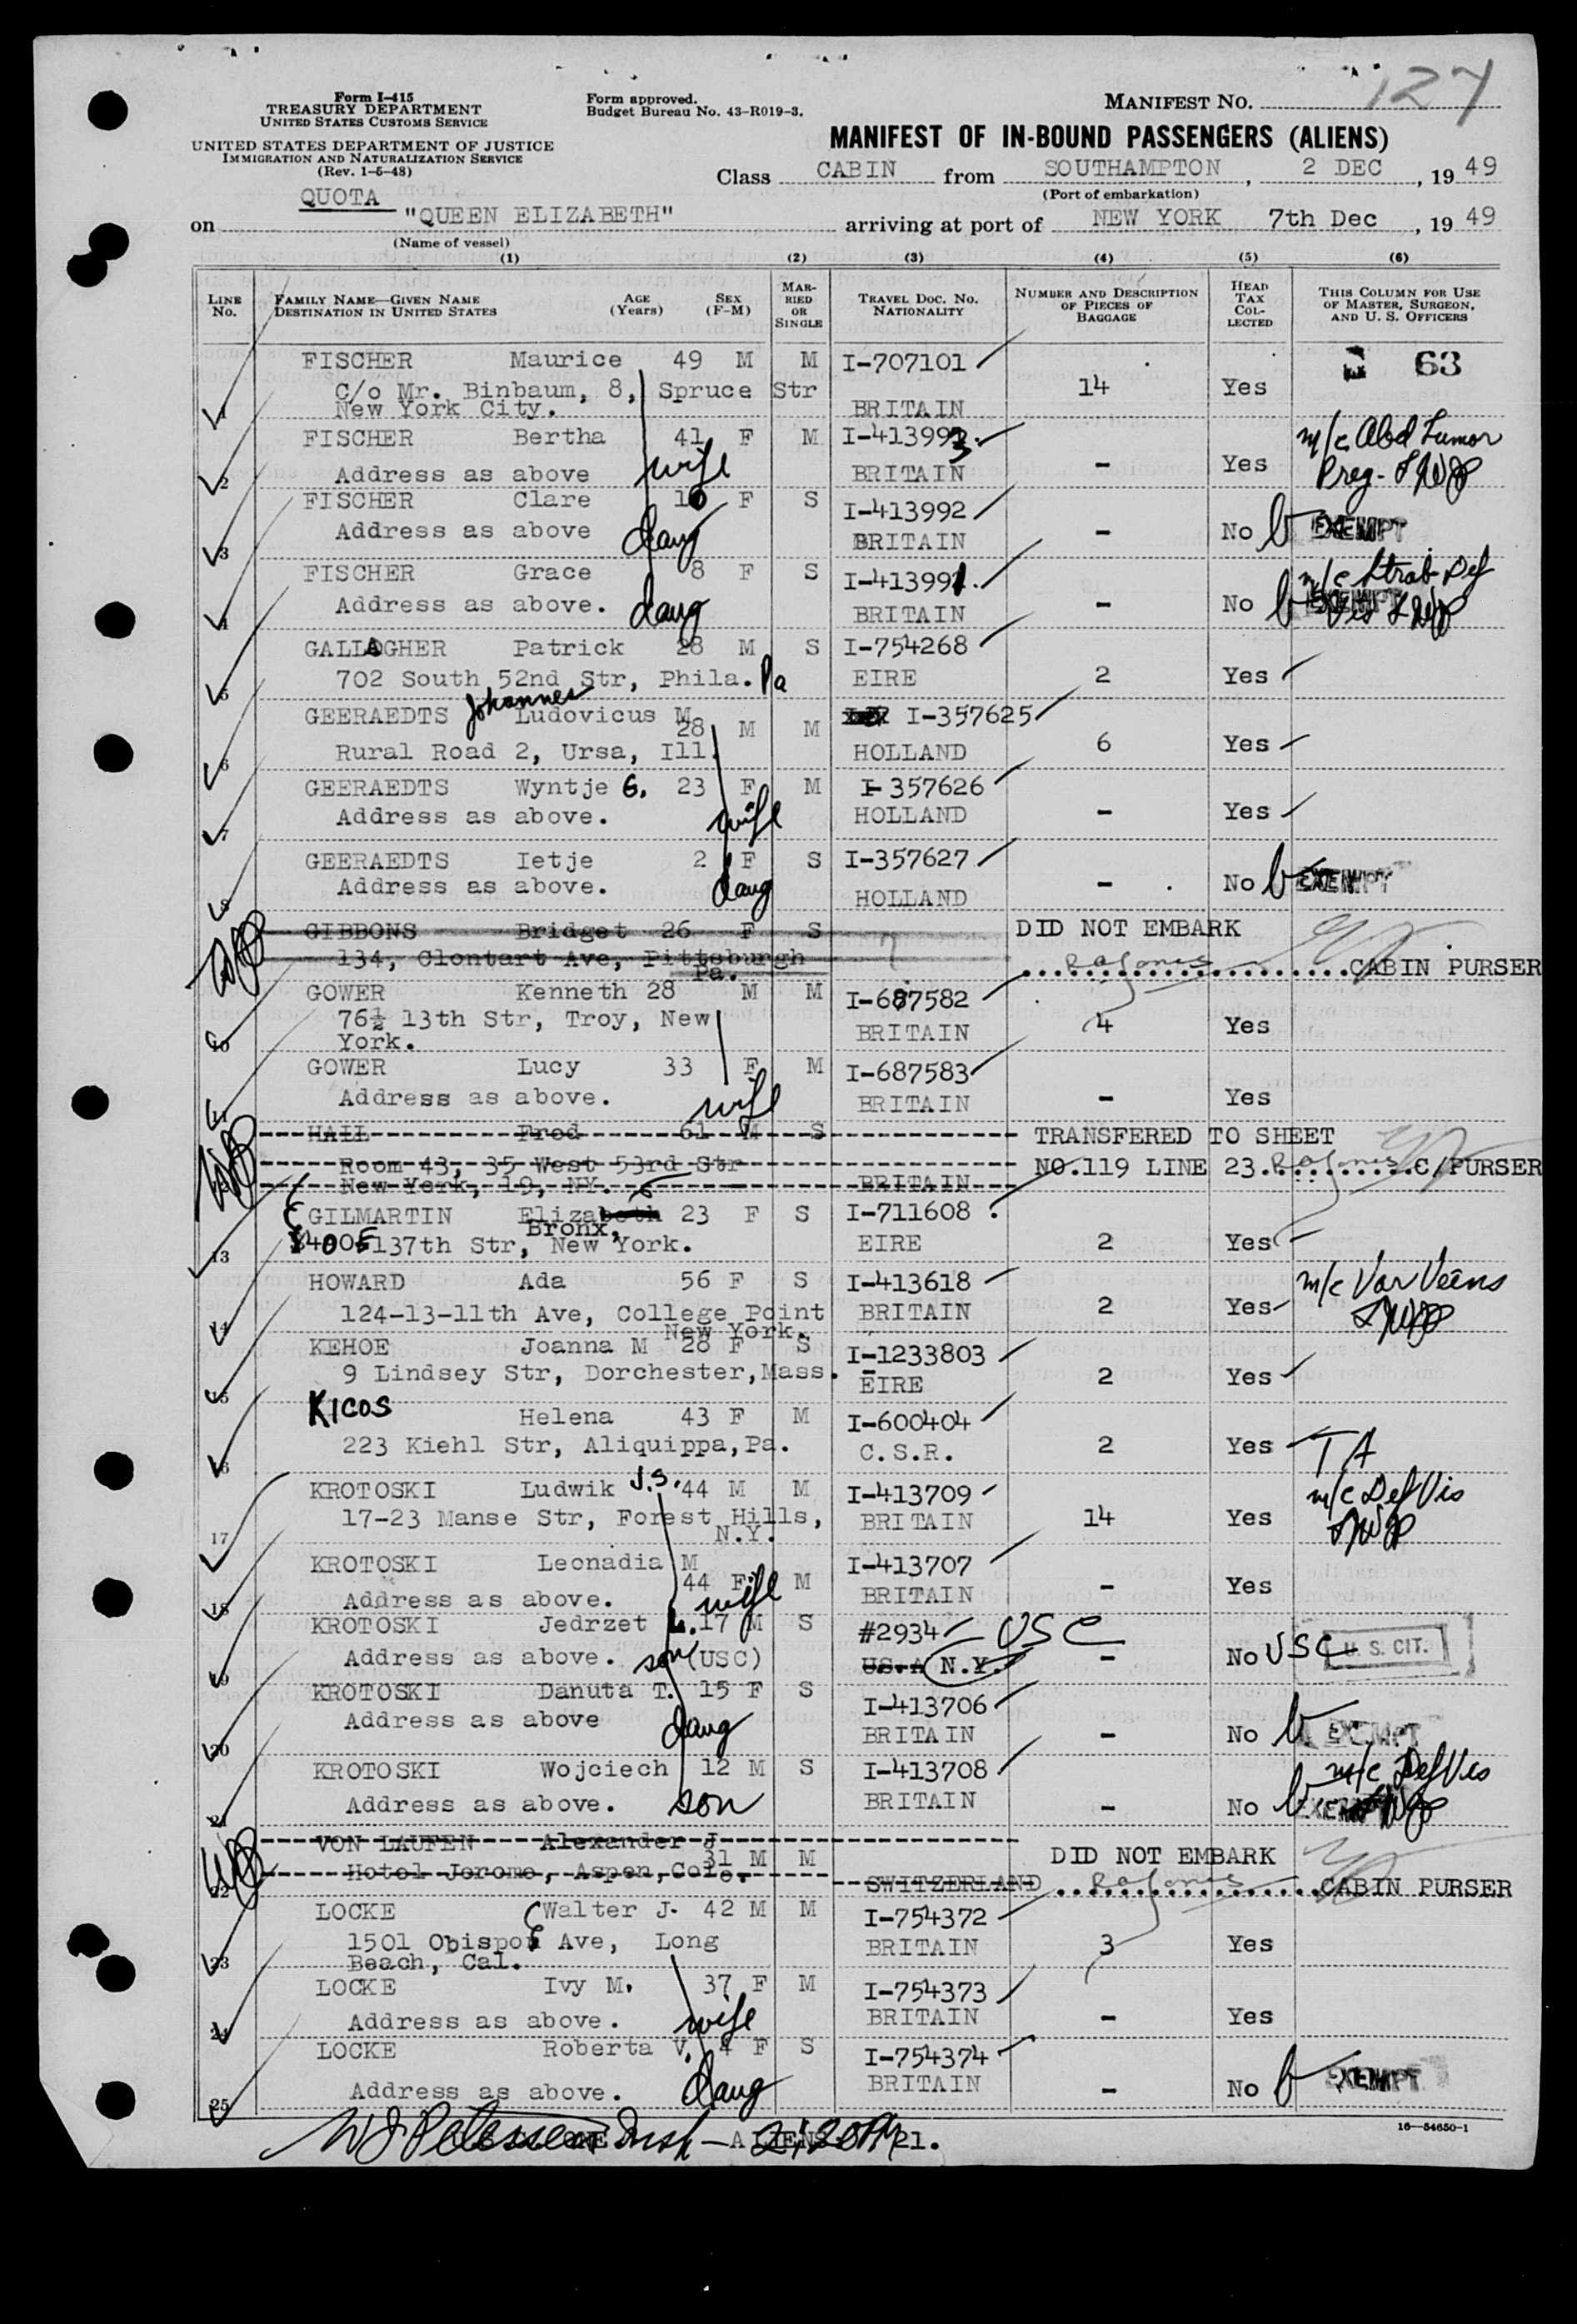 127
Form I-415
TREASURY DEPARTMENT
UNITED STATES CUSTOMS SERVICE
UNITED STATES DEPARTMENT OF JUSTICE
IMMIGRATION AND NATURALIZATION SERVICE
(Rev. 1-5-48)
Form approved.
Budget Bureau No. 43-R019-3.
MANIFEST NO.
MANIFEST OF IN-BOUND PASSENGERS (ALIENS)
Class CABIN from SOUTHAMPTON, 2 DEC, 1949
(Port of embarkation)
QUOTA
on "QUEEN ELIZABETH" arriving at port of NEW YORK 7th Dec, 1949
(Name of vessel)
(1) (2) (3) (4) (5) (6)
LINE No. FAMILY NAME—GIVEN NAME DESTINATION IN UNITED STATES AGE (Years) SEX (F-M) MARRIED OR SINGLE TRAVEL DOC. NO. NATIONALITY NUMBER AND DESCRIPTION OF PIECES OF BAGGAGE HEAD TAX COLLECTED THIS COLUMN FOR USE OF MASTER, SURGEON, AND U. S. OFFICERS
FISCHER Maurice 49 M M I-707101 63
C/o Mr. Binbaum, 8, Spruce Str 14 Yes
1 New York City. BRITAIN
FISCHER Bertha 41 F M I-413993 m/c Abd Tumor
2 Address as above wife BRITAIN - Yes Preg-
FISCHER Clare 10 F S I-413992
3 Address as above daug BRITAIN - No EXEMPT
FISCHER Grace 8 F S I-413991. m/c Strab Def
4 Address as above. daug BRITAIN - No EXEMPT Vis
GALLAGHER Patrick 28 M S I-754268
5 702 South 52nd Str, Phila. Pa EIRE 2 Yes
GEERAEDTS Johannes Ludovicus M 28 M M I-357625
6 Rural Road 2, Ursa, Ill. HOLLAND 6 Yes
GEERAEDTS Wyntje G. 23 F M I-357626
7 Address as above. wife HOLLAND - Yes
GEERAEDTS Ietje 2 F S I-357627
8 Address as above. daug HOLLAND - No EXEMPT
GIBBONS Bridget 26 F S DID NOT EMBARK
134, Clontart Ave, Pittsburgh Pa. CABIN PURSER
GOWER Kenneth 28 M M I-687582
76½ 13th Str, Troy, New BRITAIN 4 Yes
10 York.
GOWER Lucy 33 F M I-687583
11 Address as above. wife BRITAIN - Yes
HALL Fred 61 M S TRANSFERED TO SHEET
Room 43, 35 West 53rd Str NO.119 LINE 23. C/PURSER
New York, 19, NY. BRITAIN
GILMARTIN Elizabeth 23 F S I-711608
13 400 E 137th Str, Bronx, New York. EIRE 2 Yes
HOWARD Ada 56 F S I-413618 m/c Var Veins
14 124-13-11th Ave, College Point BRITAIN 2 Yes
New York.
KEHOE Joanna M 28 F S I-1233803
15 9 Lindsey Str, Dorchester, Mass. EIRE 2 Yes
KICOS Helena 43 F M I-600404
16 223 Kiehl Str, Aliquippa, Pa. C.S.R. 2 Yes TA
KROTOSKI Ludwik J.S. 44 M M I-413709 m/c Def Vis
17 17-23 Manse Str, Forest Hills, N.Y. BRITAIN 14 Yes
KROTOSKI Leonadia M 44 F M I-413707
18 Address as above. wife BRITAIN - Yes
KROTOSKI Jedrzet L. 17 M S #2934 USC
19 Address as above. son (USC) US.A N.Y. - No USC U. S. CIT.
KROTOSKI Danuta T. 15 F S I-413706
20 Address as above daug BRITAIN - No EXEMPT
KROTOSKI Wojciech 12 M S I-413708 m/c Def Vis
21 Address as above. son BRITAIN - No EXEMPT
VON LAUFEN Alexander J 31 M M DID NOT EMBARK
22 Hotel Jerome, Aspen, Colo. SWITZERLAND CABIN PURSER
LOCKE Walter J. 42 M M I-754372
1501 Obispo Ave, Long BRITAIN 3 Yes
23 Beach, Cal.
LOCKE Ivy M. 37 F M I-754373
24 Address as above. wife BRITAIN - Yes
LOCKE Roberta V. 4 F S I-754374
25 Address as above. daug BRITAIN - No EXEMPT
16—54650-1
ALIENS 21.